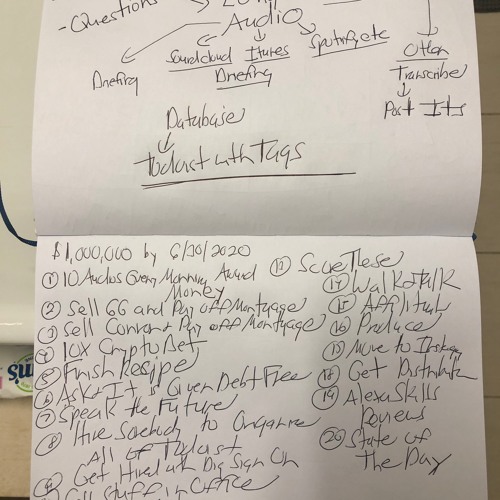 - Questions
Audio
Soundcloud Itunes Sputnicate
Briefing Briefing
Otter
Transcribe
Post Its
Database
Podcast with Tags
$1,000,000 by 6/30/2020
① 10 Audios Every Morning Around
Money
② Sell GG and Pay off Mortgage
③ Sell Condo and Pay off Mortgage
④ 10X Crypto Bet
⑤ Finish Recipe
⑥ Ask + It is Given Debt Free
⑦ Speak the Future
⑧ Hire Somebody to Organize
All of Podcast
⑨ Get Hired with Big Sign On
Sell Stuff in Office
⑬ Score These
⑭ Walk + Talk
⑮ Affiliate
⑯ Produce
Move to
⑱ Get Distribution
⑲ Alexa Skills
Reviews
⑳ State of
The Day